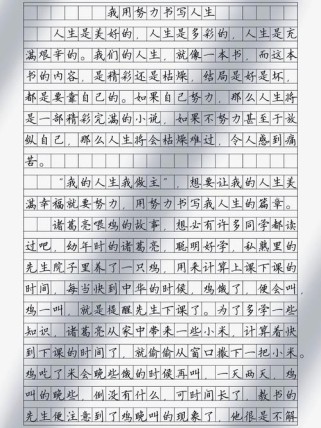 我用努力书写人生
人生是美好的，人生是多彩的，人生是充
满艰辛的。我们的人生，就像一本书，而这本
书的内容，是精彩还是枯燥，结局是好是坏，
都是要靠自己的。如果自己努力，那么人生将
是一部精彩完满的小说，如果不努力甚至于放
纵自己，那么人生将会枯燥难过，令人感到痛
苦。
“我的人生我做主”，想要让我的人生美
满幸福就要努力，用努力书写我人生的篇章。
诸葛亮喂鸡的故事，想必有许多同学都读
过吧，幼年时的诸葛亮，聪明好学，私熟里的
先生院子里养了一只鸡，用来计算上课下课的
时间，每当快到中午的时候，鸡饿了，便会叫，
鸡一叫，就是提醒先生下课了。为了多学一些
知识，诸葛亮从家中带来一些小米，计算着快
到下课的时间了，就偷偷从窗口撒下一把小米。
鸡吃了米会晚些饿的时候再叫，一天两天，鸡
叫的晚些，倒没有什么，可时间长了，教书的
先生便注意到了鸡晚叫的现象了，他很是不解